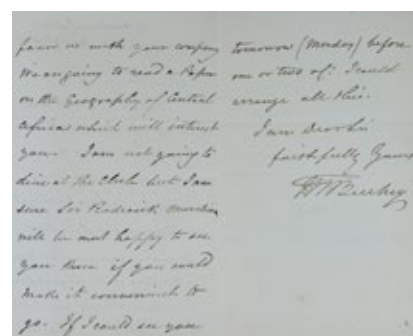 favor us with your company
We are going to read a Paper
on the Geography of Central
Africa which will interest
you. I am not going to
dine at the Club but I am
sure Sir Roderick Murchison
will be most happy to see
you there if you could
make it convenient to
go. If I could see you
tomorrow (Monday) before
one or two o'c: I could
arrange all this.
I am Dear Sir
faithfully Yours